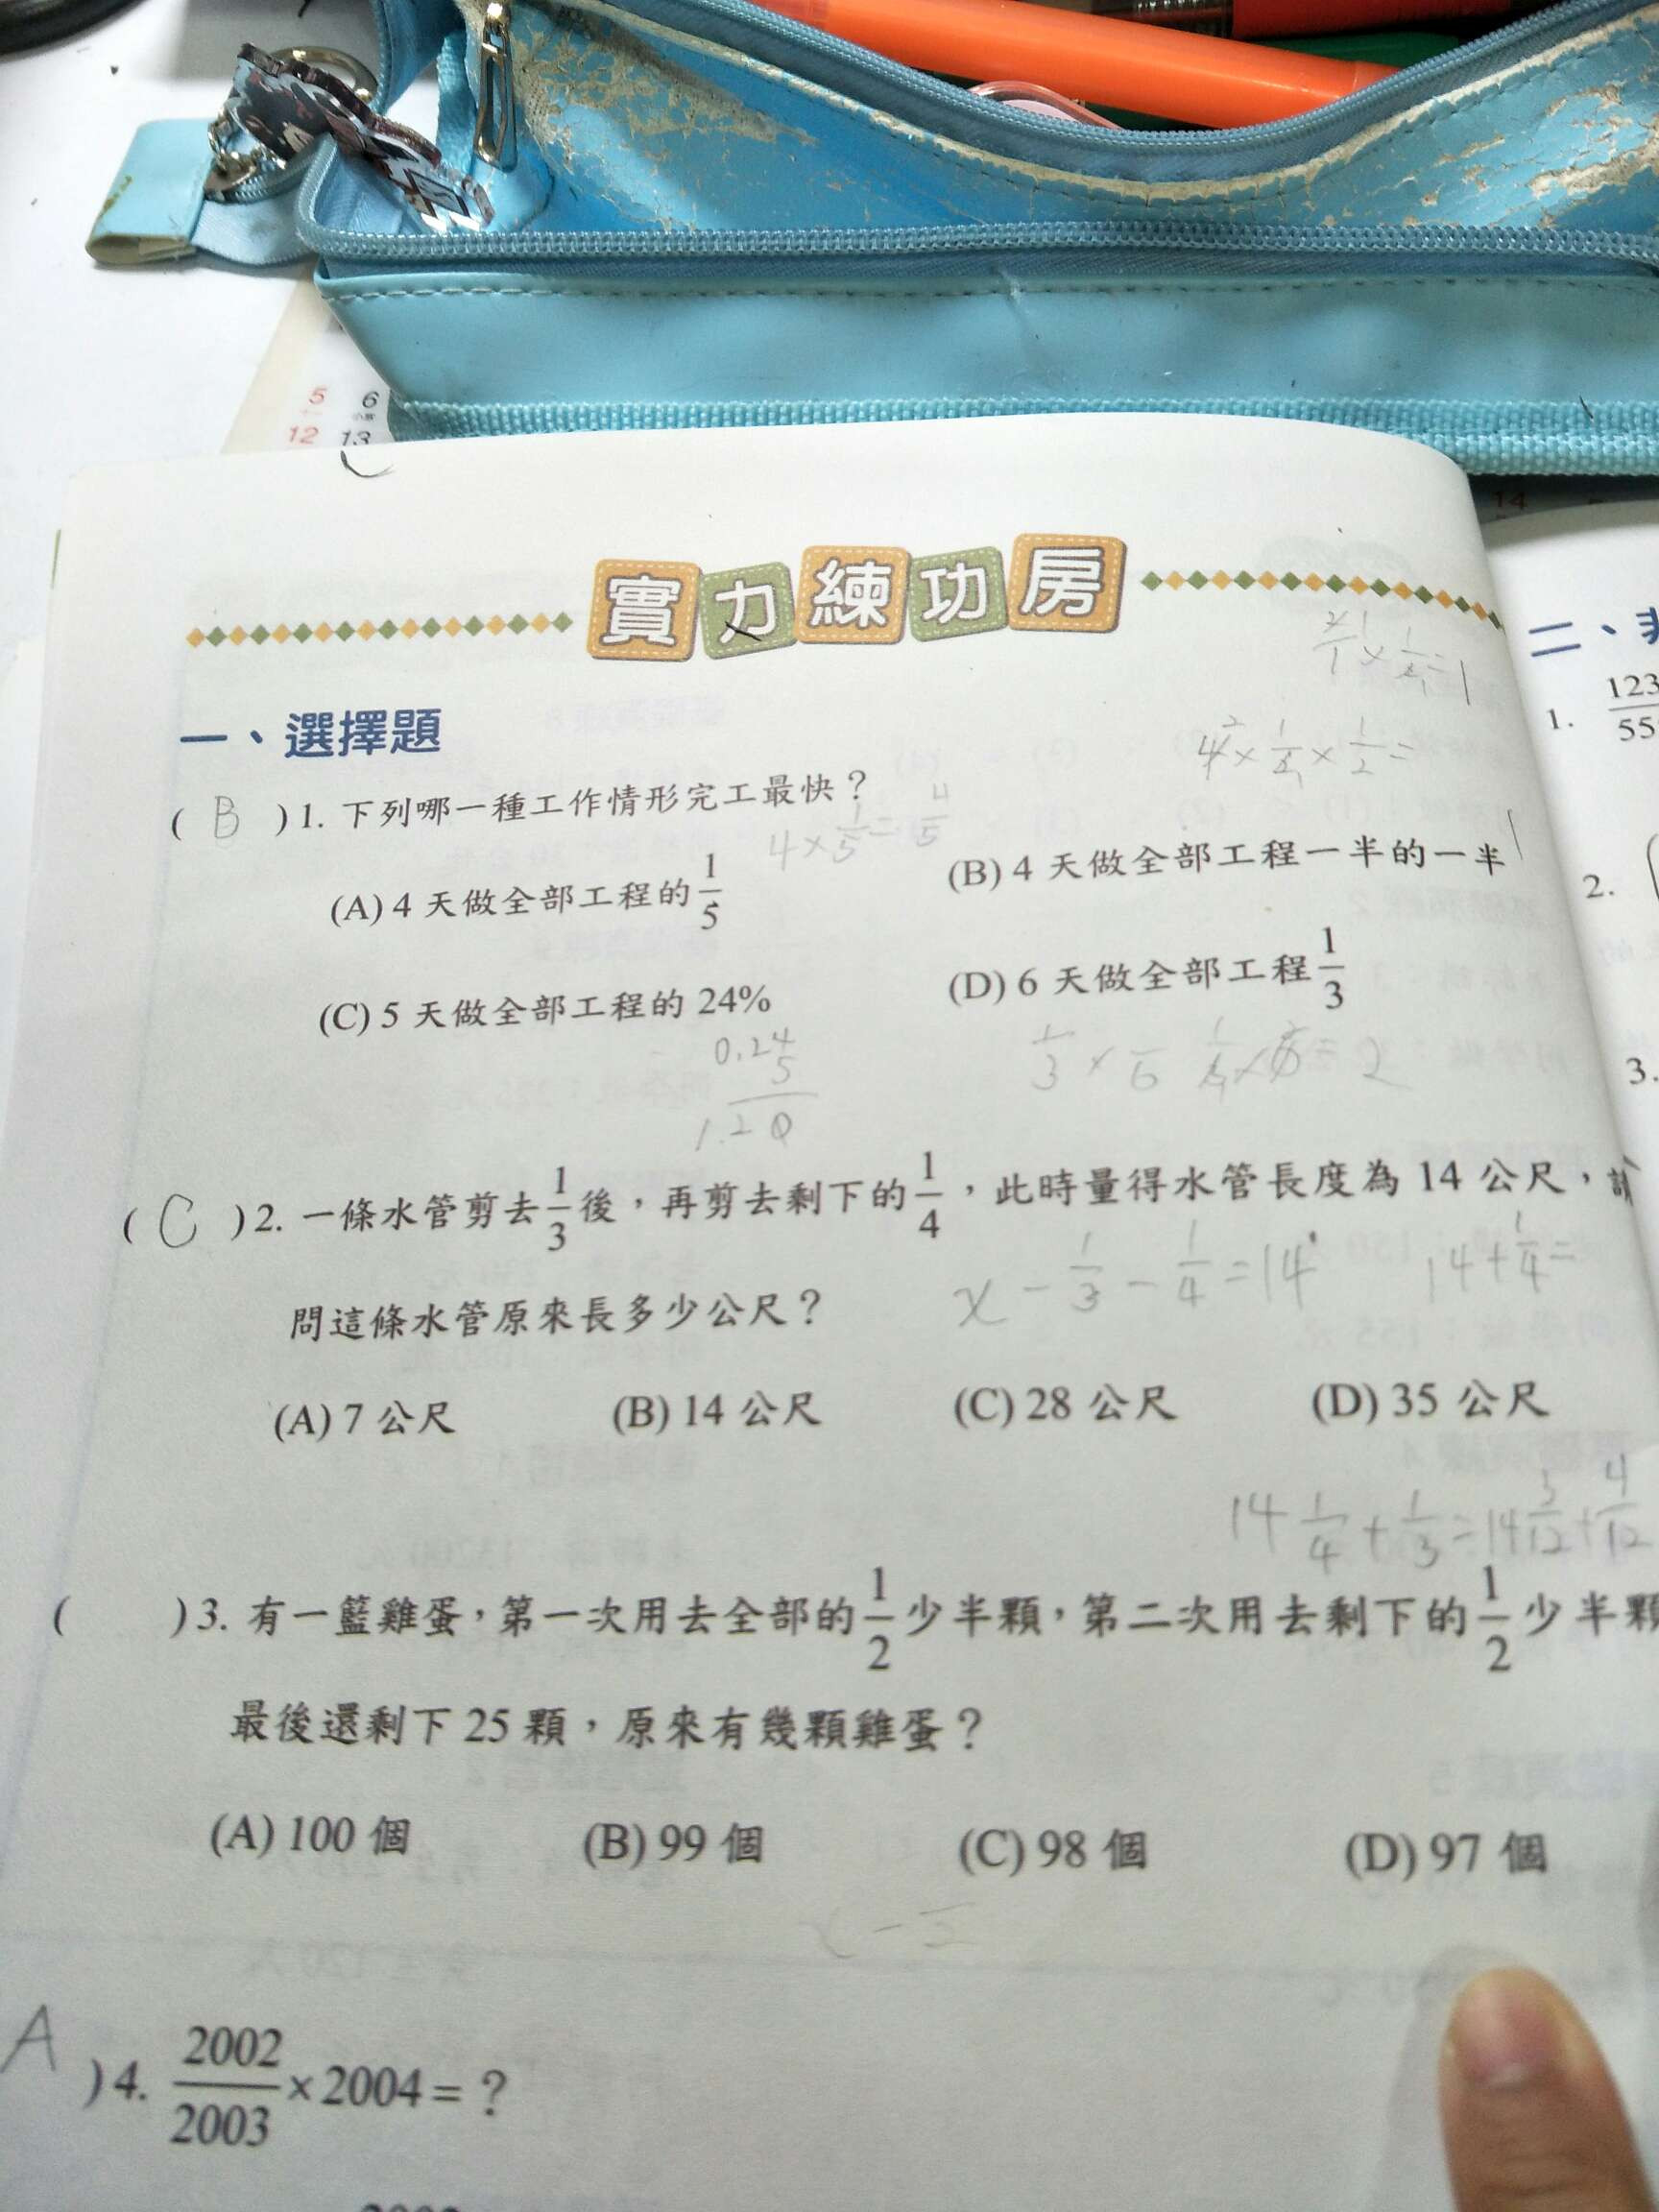 5 6
12 13
14
實力練功房
一、選擇題
二、
( B ) 1. 下列哪一種工作情形完工最快？
4 × 1/5 = 4/5
4 × 1/2 × 1/2 =
(A) 4 天做全部工程的 1/5 (B) 4 天做全部工程一半的一半
(C) 5 天做全部工程的 24% (D) 6 天做全部工程 1/3
0.24
5
1.20
( C ) 2. 一條水管剪去 1/3 後，再剪去剩下的 1/4，此時量得水管長度為 14 公尺，
x - 1/3 - 1/4 = 14 14 + 1/4 =
問這條水管原來長多少公尺？
(A) 7 公尺 (B) 14 公尺 (C) 28 公尺 (D) 35 公尺
14 1/4 + 1/3 = 14 3/12 + 4/12
( ) 3. 有一籃雞蛋，第一次用去全部的 1/2 少半顆，第二次用去剩下的 1/2 少半顆
最後還剩下 25 顆，原來有幾顆雞蛋？
(A) 100 個 (B) 99 個 (C) 98 個 (D) 97 個
A ) 4. 2002/2003 × 2004 = ？
1. 123
55
2.
3.